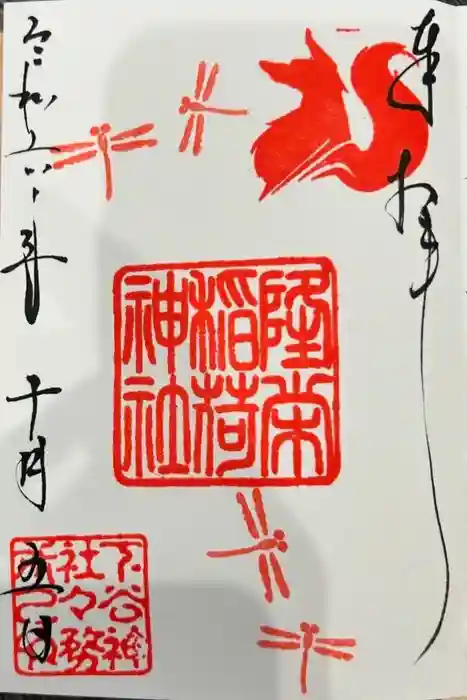 奉拝
隆栄
稲荷
神社
令和六年 十月 五日
下谷神
社々務